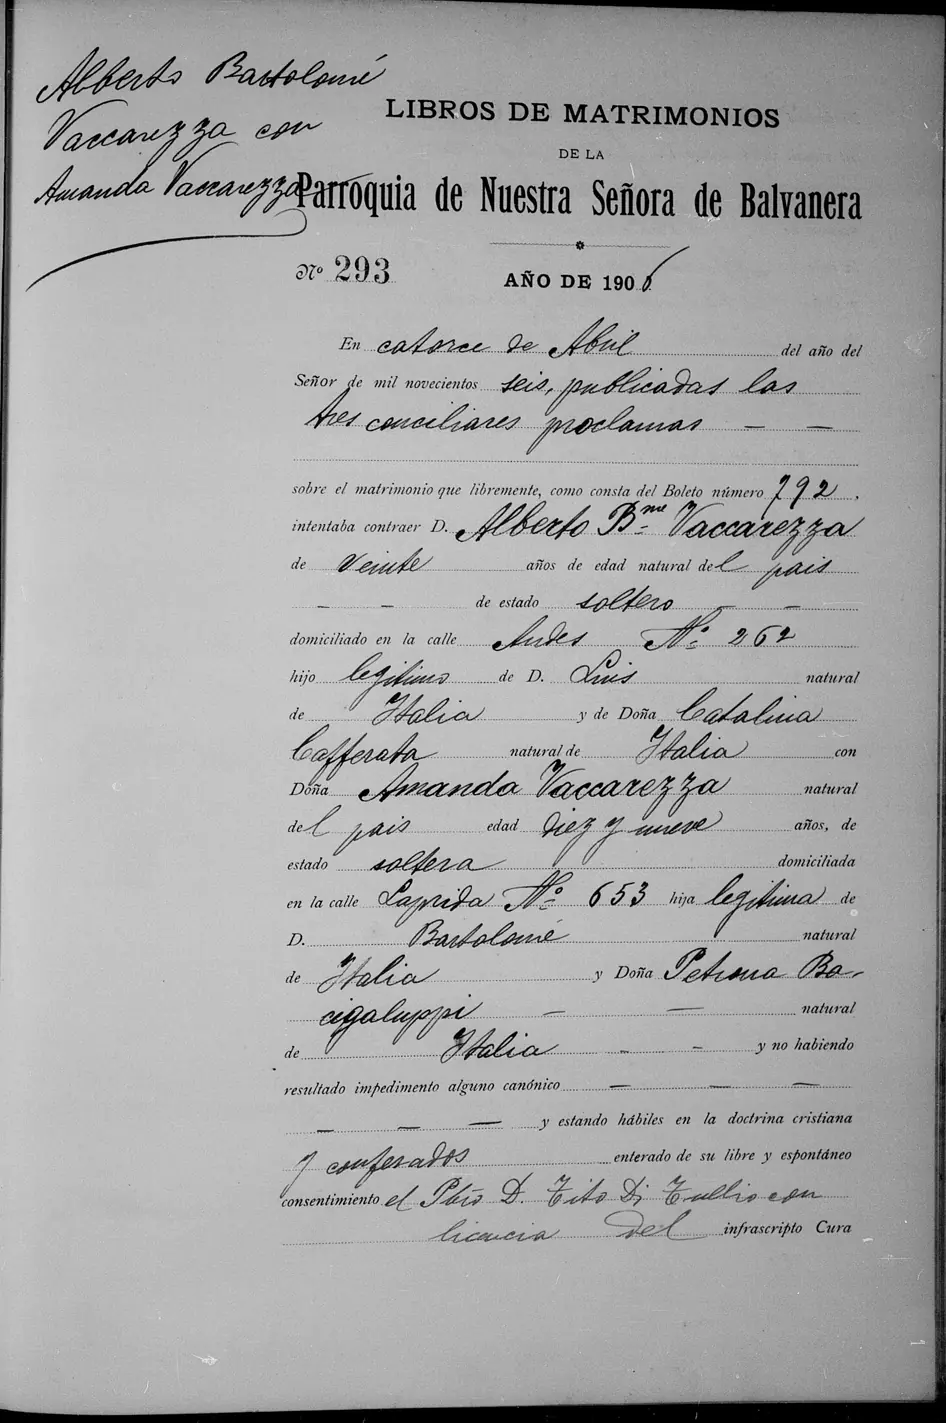 Alberto Bartolomé
Vaccarezza con
Amanda Vaccarezza
LIBROS DE MATRIMONIOS
DE LA
Parroquia de Nuestra Señora de Balvanera
Nº 293
AÑO DE 1906
En catorce de Abril del año del
Señor de mil novecientos seis, publicadas las
tres conciliares proclamas — —
sobre el matrimonio que libremente, como consta del Boleto número 792,
intentaba contraer D. Alberto Bme Vaccarezza
de veinte años de edad natural del pais
— — de estado soltero — —
domiciliado en la calle Andes Nº 262
hijo legitimo de D. Luis natural
de Italia y de Doña Catalina
Cafferata natural de Italia con
Doña Amanda Vaccarezza natural
del pais edad diez y nueve años, de
estado soltera domiciliada
en la calle Laprida Nº 653 hija legitima de
D. Bartolomé natural
de Italia y Doña Petrona Ba-
cigaluppi — — natural
de Italia — — y no habiendo
resultado impedimento alguno canónico — — —
— — — y estando hábiles en la doctrina cristiana
y confesados enterado de su libre y espontáneo
consentimiento el Pbro D. Tito Di Tullio con
licencia del infrascripto Cura